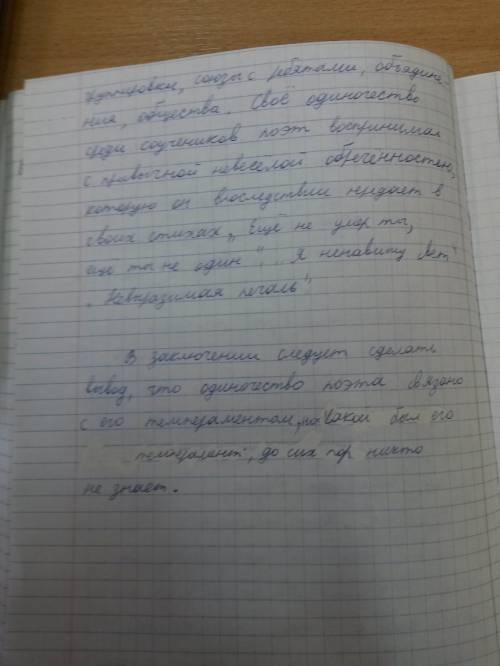 группировки, союзы с ребятами, объедине-
ния, общества. Своё одиночество
среди соучеников поэт воспринимал
с привычной невесёлой обречённостью,
которую он впоследствии передаёт в
своих стихах „Ещё не умер ты,
ещё ты не один", „Я ненавижу свет"
„Невыразимая печаль"
В заключении следует сделать
вывод, что одиночество поэта связано
с его темпераментом, но какой был его
темперамент, до сих пор никто
не знает.